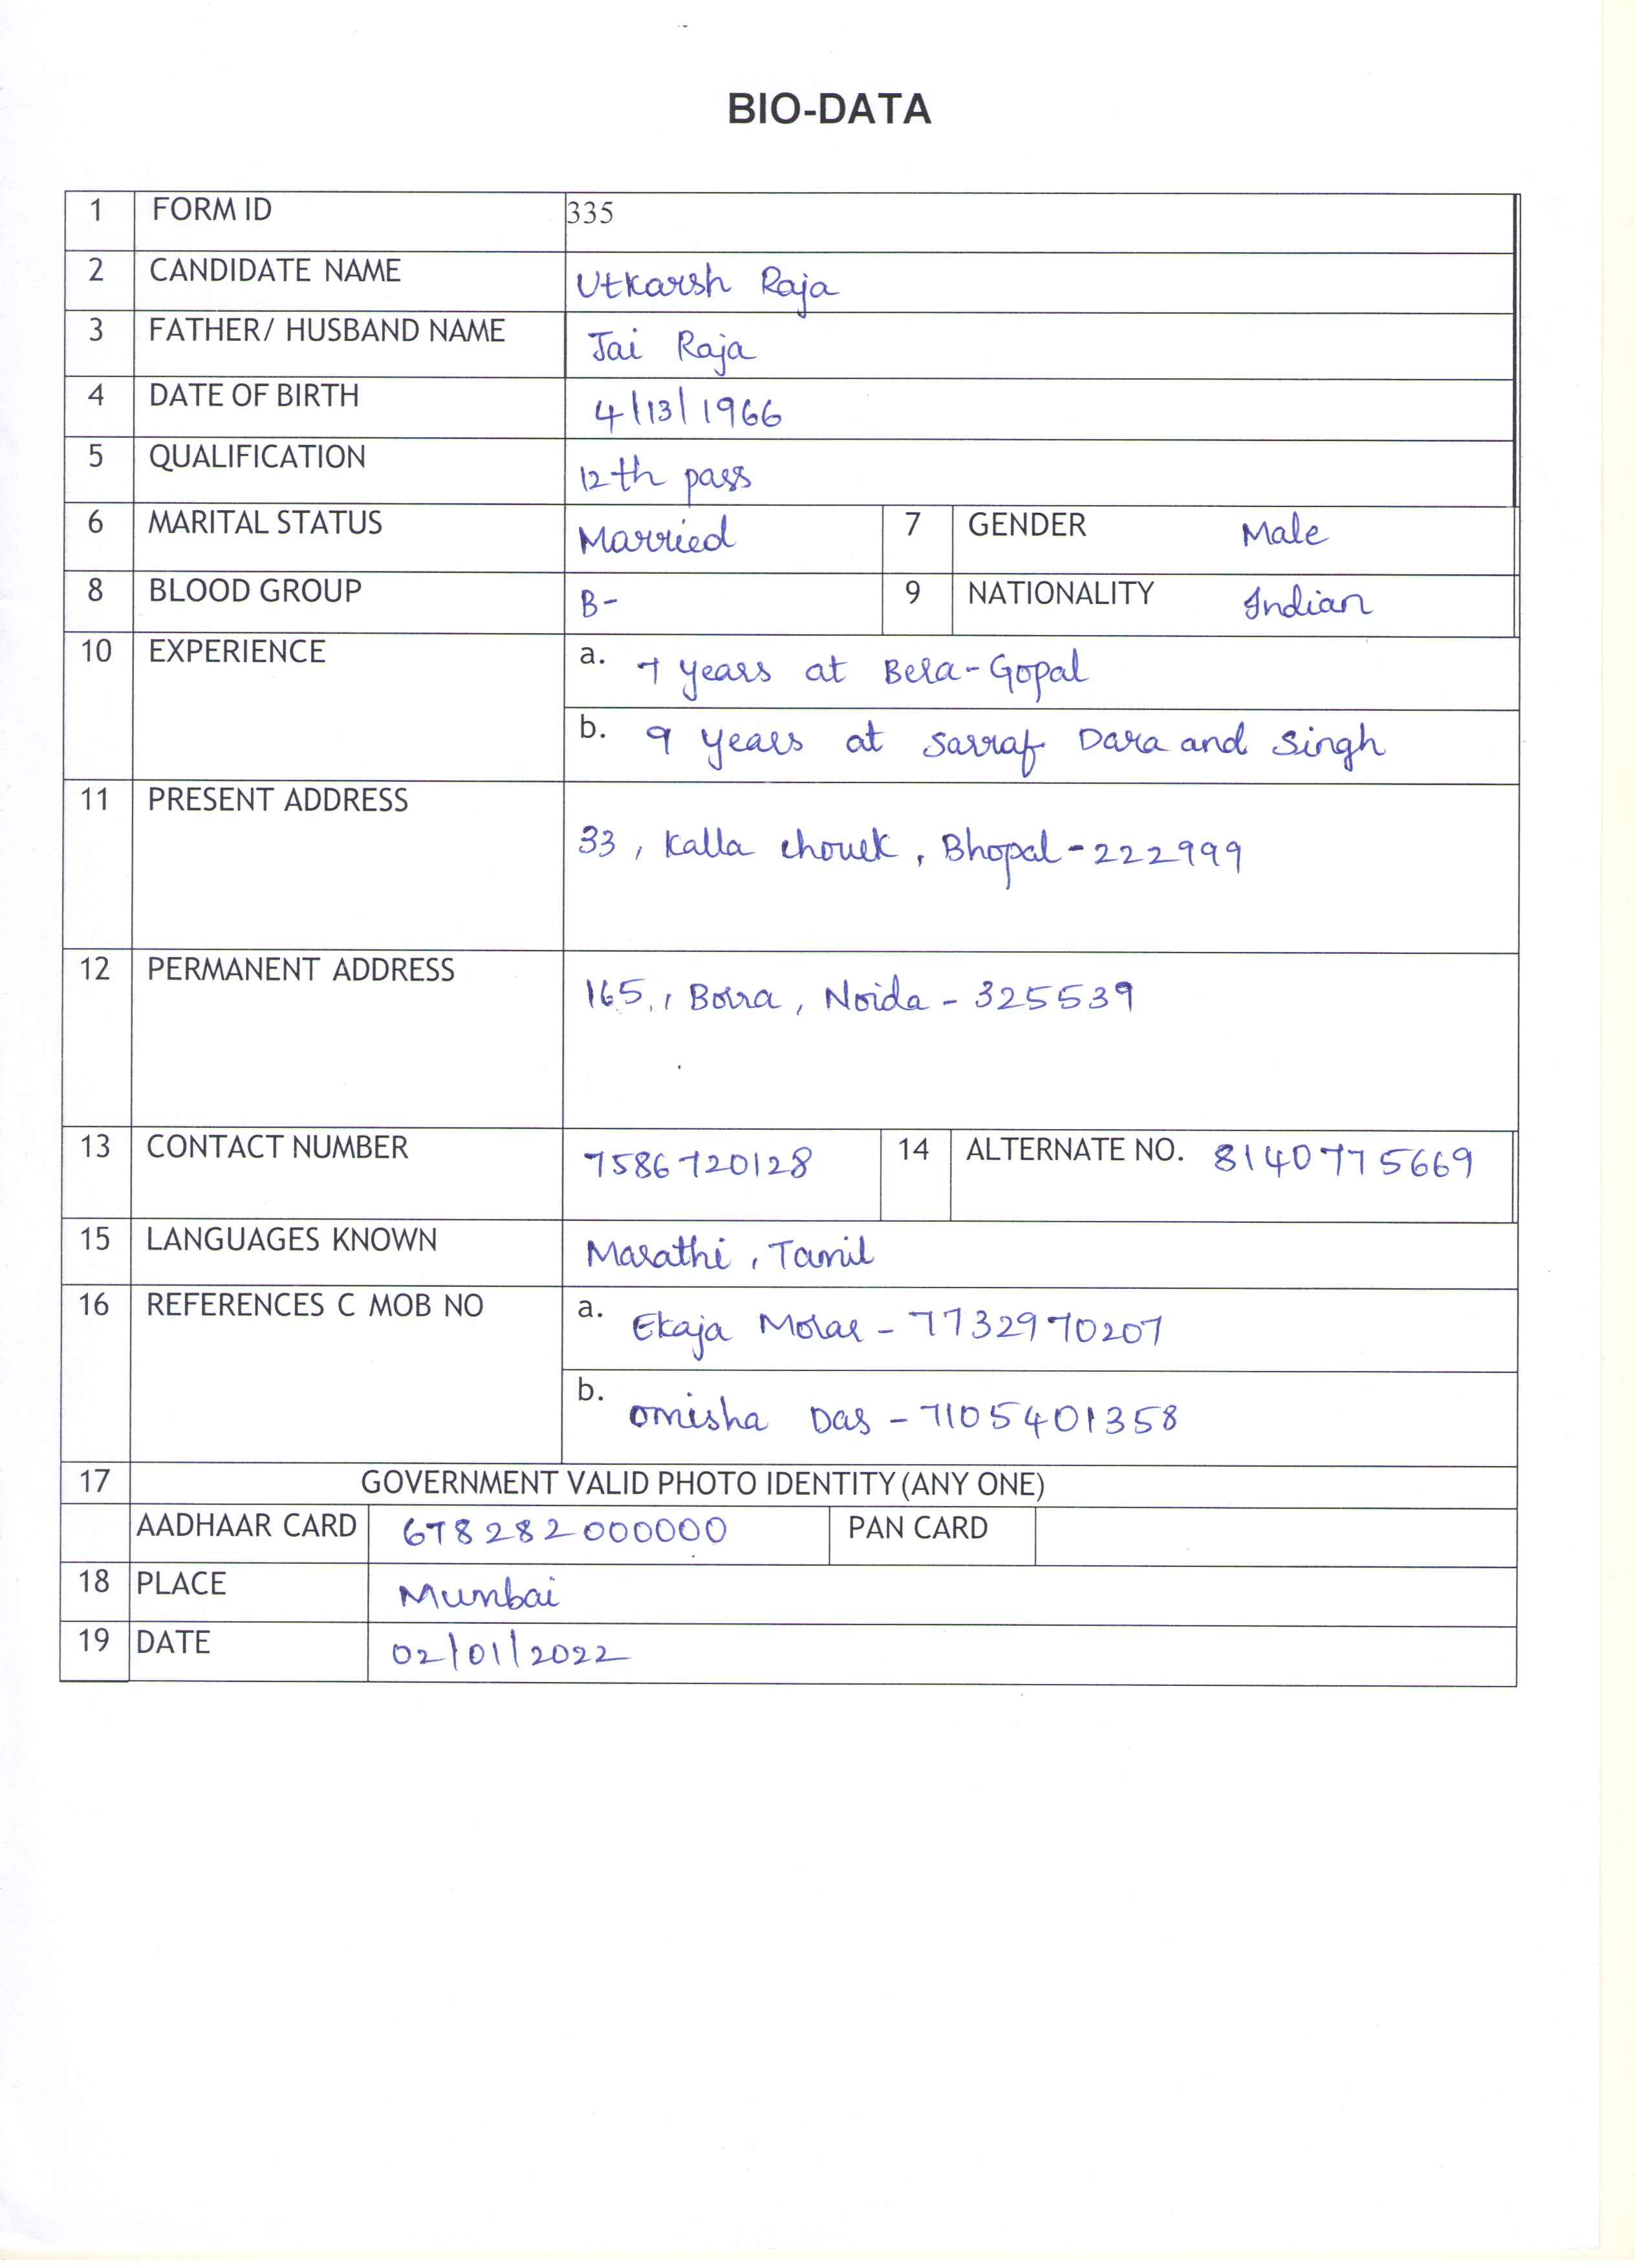 BIO-DATA
1 FORM ID 335
2 CANDIDATE NAME Utkarsh Raja
3 FATHER/ HUSBAND NAME Jai Raja
4 DATE OF BIRTH 4/13/1966
5 QUALIFICATION 12th pass
6 MARITAL STATUS Married 7 GENDER Male
8 BLOOD GROUP B- 9 NATIONALITY Indian
10 EXPERIENCE a. 7 years at Bera-Gopal
b. 9 years at Sarraf Dara and Singh
11 PRESENT ADDRESS
33, Kalla chowk, Bhopal-222999
12 PERMANENT ADDRESS
165, Borra, Noida - 325539
13 CONTACT NUMBER 7586720128 14 ALTERNATE NO. 8140775669
15 LANGUAGES KNOWN Marathi, Tamil
16 REFERENCES C MOB NO a. Ekaja Morar - 7732970207
b. Omisha Das - 7105401358
17 GOVERNMENT VALID PHOTO IDENTITY (ANY ONE)
AADHAAR CARD 678282000000 PAN CARD
18 PLACE Mumbai
19 DATE 02/01/2022